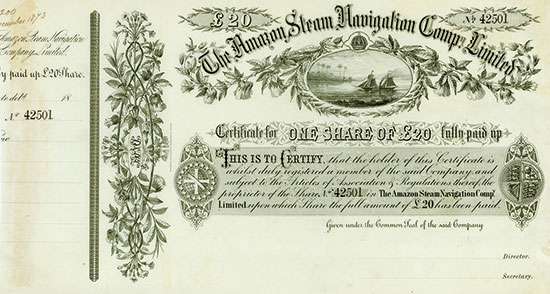 1873
Amazon Steam Navigation
Company, Limited.
paid up £20 Share.
to debit 18
No 42501
£20
No 42501
The Amazon Steam Navigation Compy. Limited.
Certificate for ONE SHARE OF £20 fully paid up
THIS IS TO CERTIFY, that the holder of this Certificate is
whilst duly registered a member of the said Company and
subject to the Articles of Association & Regulations thereof, the
Proprietor of Share No 42501 in The Amazon Steam Navigation Compy.
Limited upon which Share the full amount of £20 has been paid.
Given under the Common Seal of the said Company
Director.
Secretary.